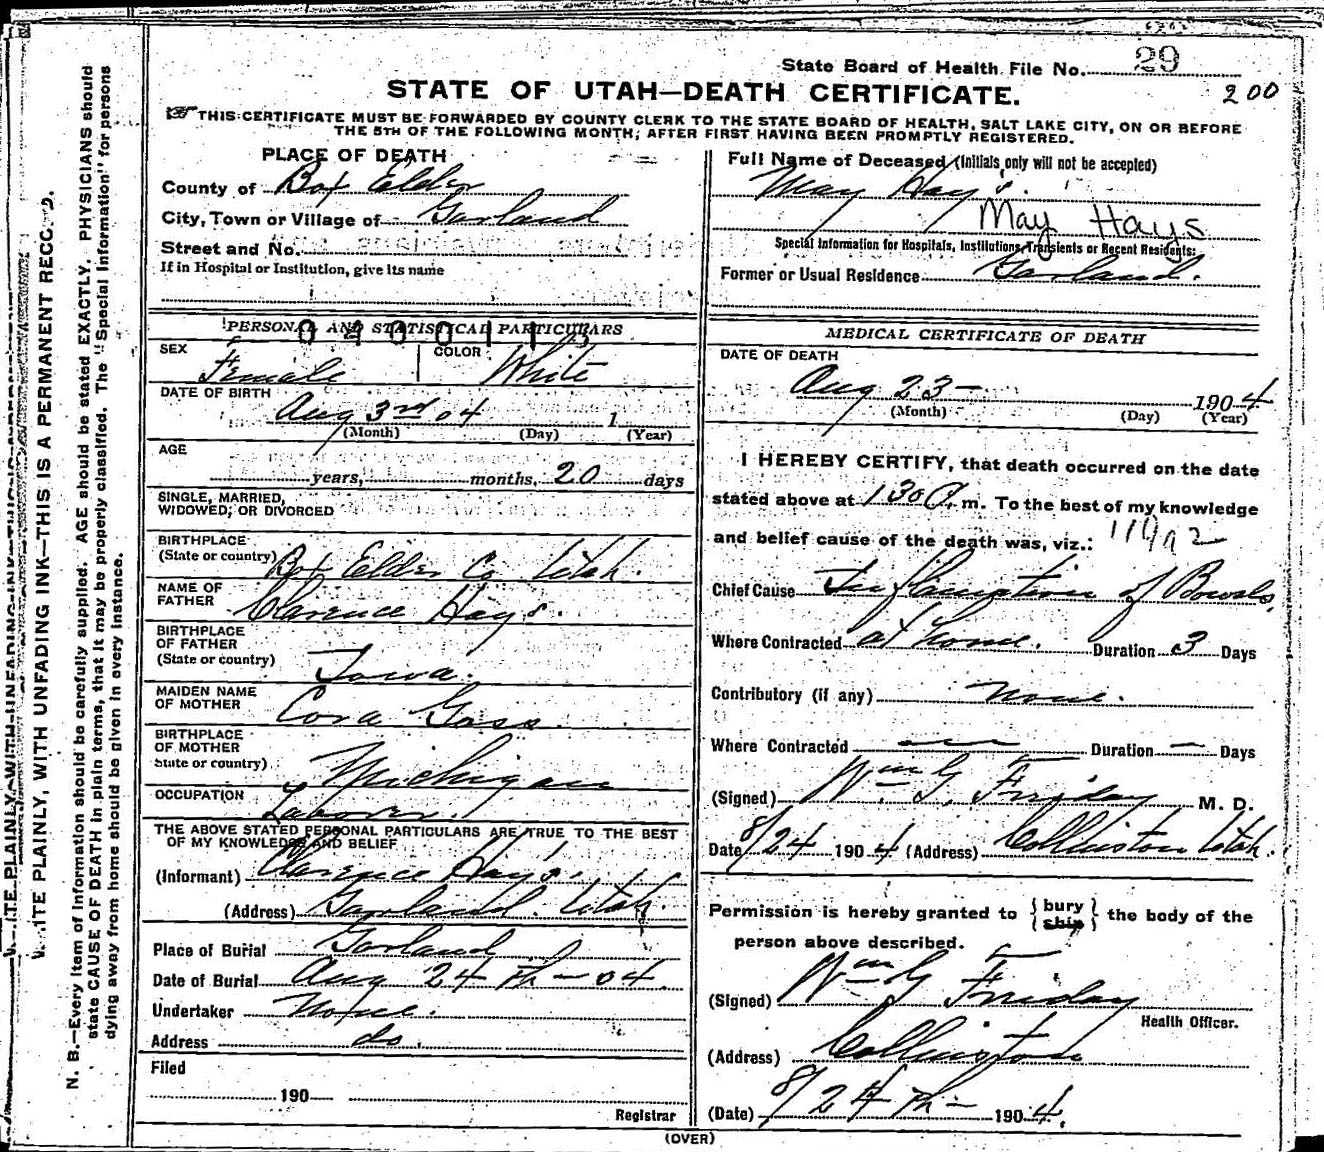 State Board of Health File No. 29
200
STATE OF UTAH—DEATH CERTIFICATE.
THIS CERTIFICATE MUST BE FORWARDED BY COUNTY CLERK TO THE STATE BOARD OF HEALTH, SALT LAKE CITY, ON OR BEFORE
THE 5TH OF THE FOLLOWING MONTH, AFTER FIRST HAVING BEEN PROMPTLY REGISTERED.
PLACE OF DEATH
County of Box Elder
City, Town or Village of Garland
Street and No.
If in Hospital or Institution, give its name
Full Name of Deceased (Initials only will not be accepted)
May Hays.
May Hays
Special Information for Hospitals, Institutions, Transients or Recent Residents:
Former or Usual Residence Garland.
PERSONAL AND STATISTICAL PARTICULARS
SEX Female
COLOR White
DATE OF BIRTH
Aug 3rd 04 1
(Month) (Day) (Year)
AGE
years, months, 20 days
SINGLE, MARRIED,
WIDOWED, OR DIVORCED
BIRTHPLACE
(State or country) Box Elder Co Utah.
NAME OF
FATHER Clarence Hays.
BIRTHPLACE
OF FATHER
(State or country) Iowa.
MAIDEN NAME
OF MOTHER Cora Goss.
BIRTHPLACE
OF MOTHER
State or country) Michigan
OCCUPATION Labor.
THE ABOVE STATED PERSONAL PARTICULARS ARE TRUE TO THE BEST
OF MY KNOWLEDGE AND BELIEF
(Informant) Clarence Hays.
(Address) Garland. Utah.
Place of Burial Garland
Date of Burial Aug 24th - 04.
Undertaker None.
Address do.
Filed
190
Registrar
MEDICAL CERTIFICATE OF DEATH
DATE OF DEATH
Aug 23 - 1904
(Month) (Day) (Year)
I HEREBY CERTIFY, that death occurred on the date
stated above at 130 A. m. To the best of my knowledge
and belief cause of the death was, viz.:
Chief Cause Inflamption of Bowels,
Where Contracted at home. Duration 3 Days
Contributory (if any) None.
Where Contracted — Duration — Days
(Signed) Wm. G. Friday M. D.
Date 8/24 1904 (Address) Collinston Utah.
Permission is hereby granted to { bury ship } the body of the
person above described.
(Signed) Wm G Friday
Health Officer.
(Address) Collinston
(Date) 8/24th - 1904.
(OVER)
WRITE PLAINLY, WITH UNFADING INK—THIS IS A PERMANENT
N. B.—Every item of information should be carefully supplied. AGE should be stated EXACTLY. PHYSICIANS should
state CAUSE OF DEATH in plain terms, that it may be properly classified. The "Special Information" for persons
dying away from home should be given in every instance.